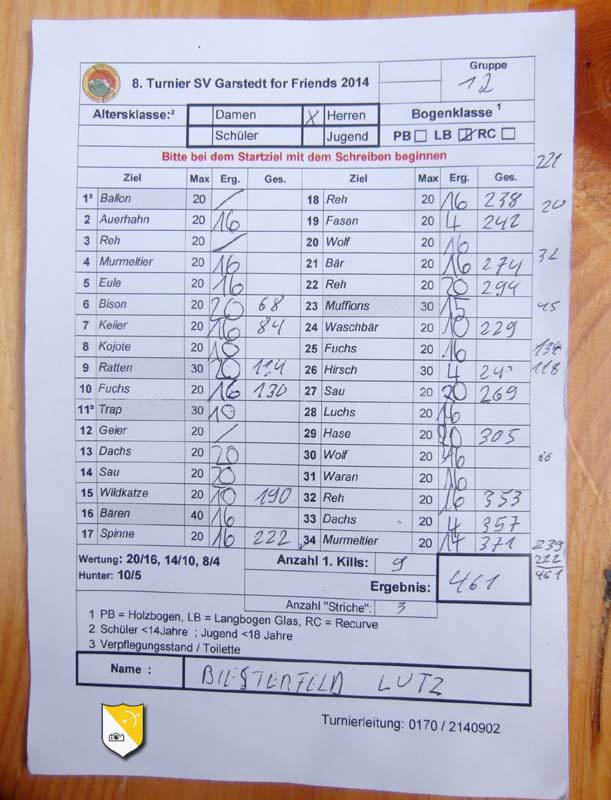 8. Turnier SV Garstedt for Friends 2014 Gruppe 12
Altersklasse:² Damen X Herren Bogenklasse 1
Schüler Jugend PB LB RC
Bitte bei dem Startziel mit dem Schreiben beginnen 221
Ziel Max Erg. Ges. Ziel Max Erg. Ges.
1³ Ballon 20 / 18 Reh 20 16 238 20
2 Auerhahn 20 16 19 Fasan 20 4 242
3 Reh 20 / 20 Wolf 20 16
4 Murmeltier 20 16 21 Bär 20 16 274 32
5 Eule 20 16 22 Reh 20 20 294
6 Bison 20 20 68 23 Mufflons 30 15 45
7 Keiler 20 16 84 24 Waschbär 20 10 229
8 Kojote 20 10 25 Fuchs 20 16
9 Ratten 30 20 114 26 Hirsch 30 4 118
10 Fuchs 20 16 130 27 Sau 20 20 269
11³ Trap 30 10 28 Luchs 20 16
12 Geier 20 / 29 Hase 20 20 305
13 Dachs 20 20 30 Wolf 20 16 66
14 Sau 20 20 31 Waran 20 16
15 Wildkatze 20 10 190 32 Reh 20 16 353
16 Bären 40 16 33 Dachs 20 4 357
17 Spinne 20 16 222 34 Murmeltier 20 14 371 239
Wertung: 20/16, 14/10, 8/4 Anzahl 1. Kills: 9 222
Hunter: 10/5 Ergebnis: 461 461
Anzahl "Striche": 3
1 PB = Holzbogen, LB = Langbogen Glas, RC = Recurve
2 Schüler <14Jahre ; Jugend <18 Jahre
3 Verpflegungsstand / Toilette
Name : BIESTERFELD LUTZ
Turnierleitung: 0170 / 2140902